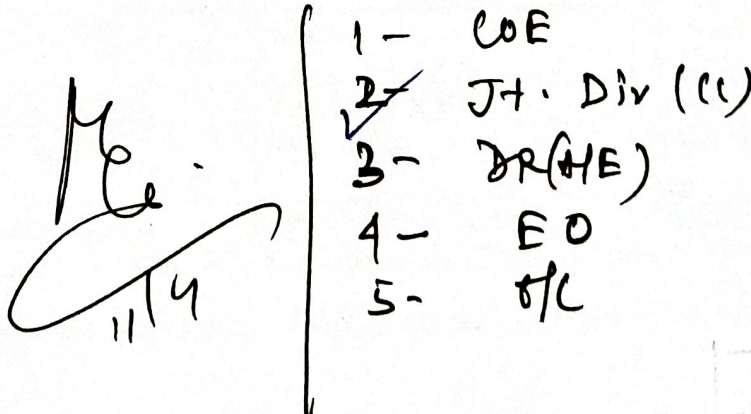 11/4
1- COE
2- Jt. Div (CC)
3- DR(A/E)
4- EO
5- O/C